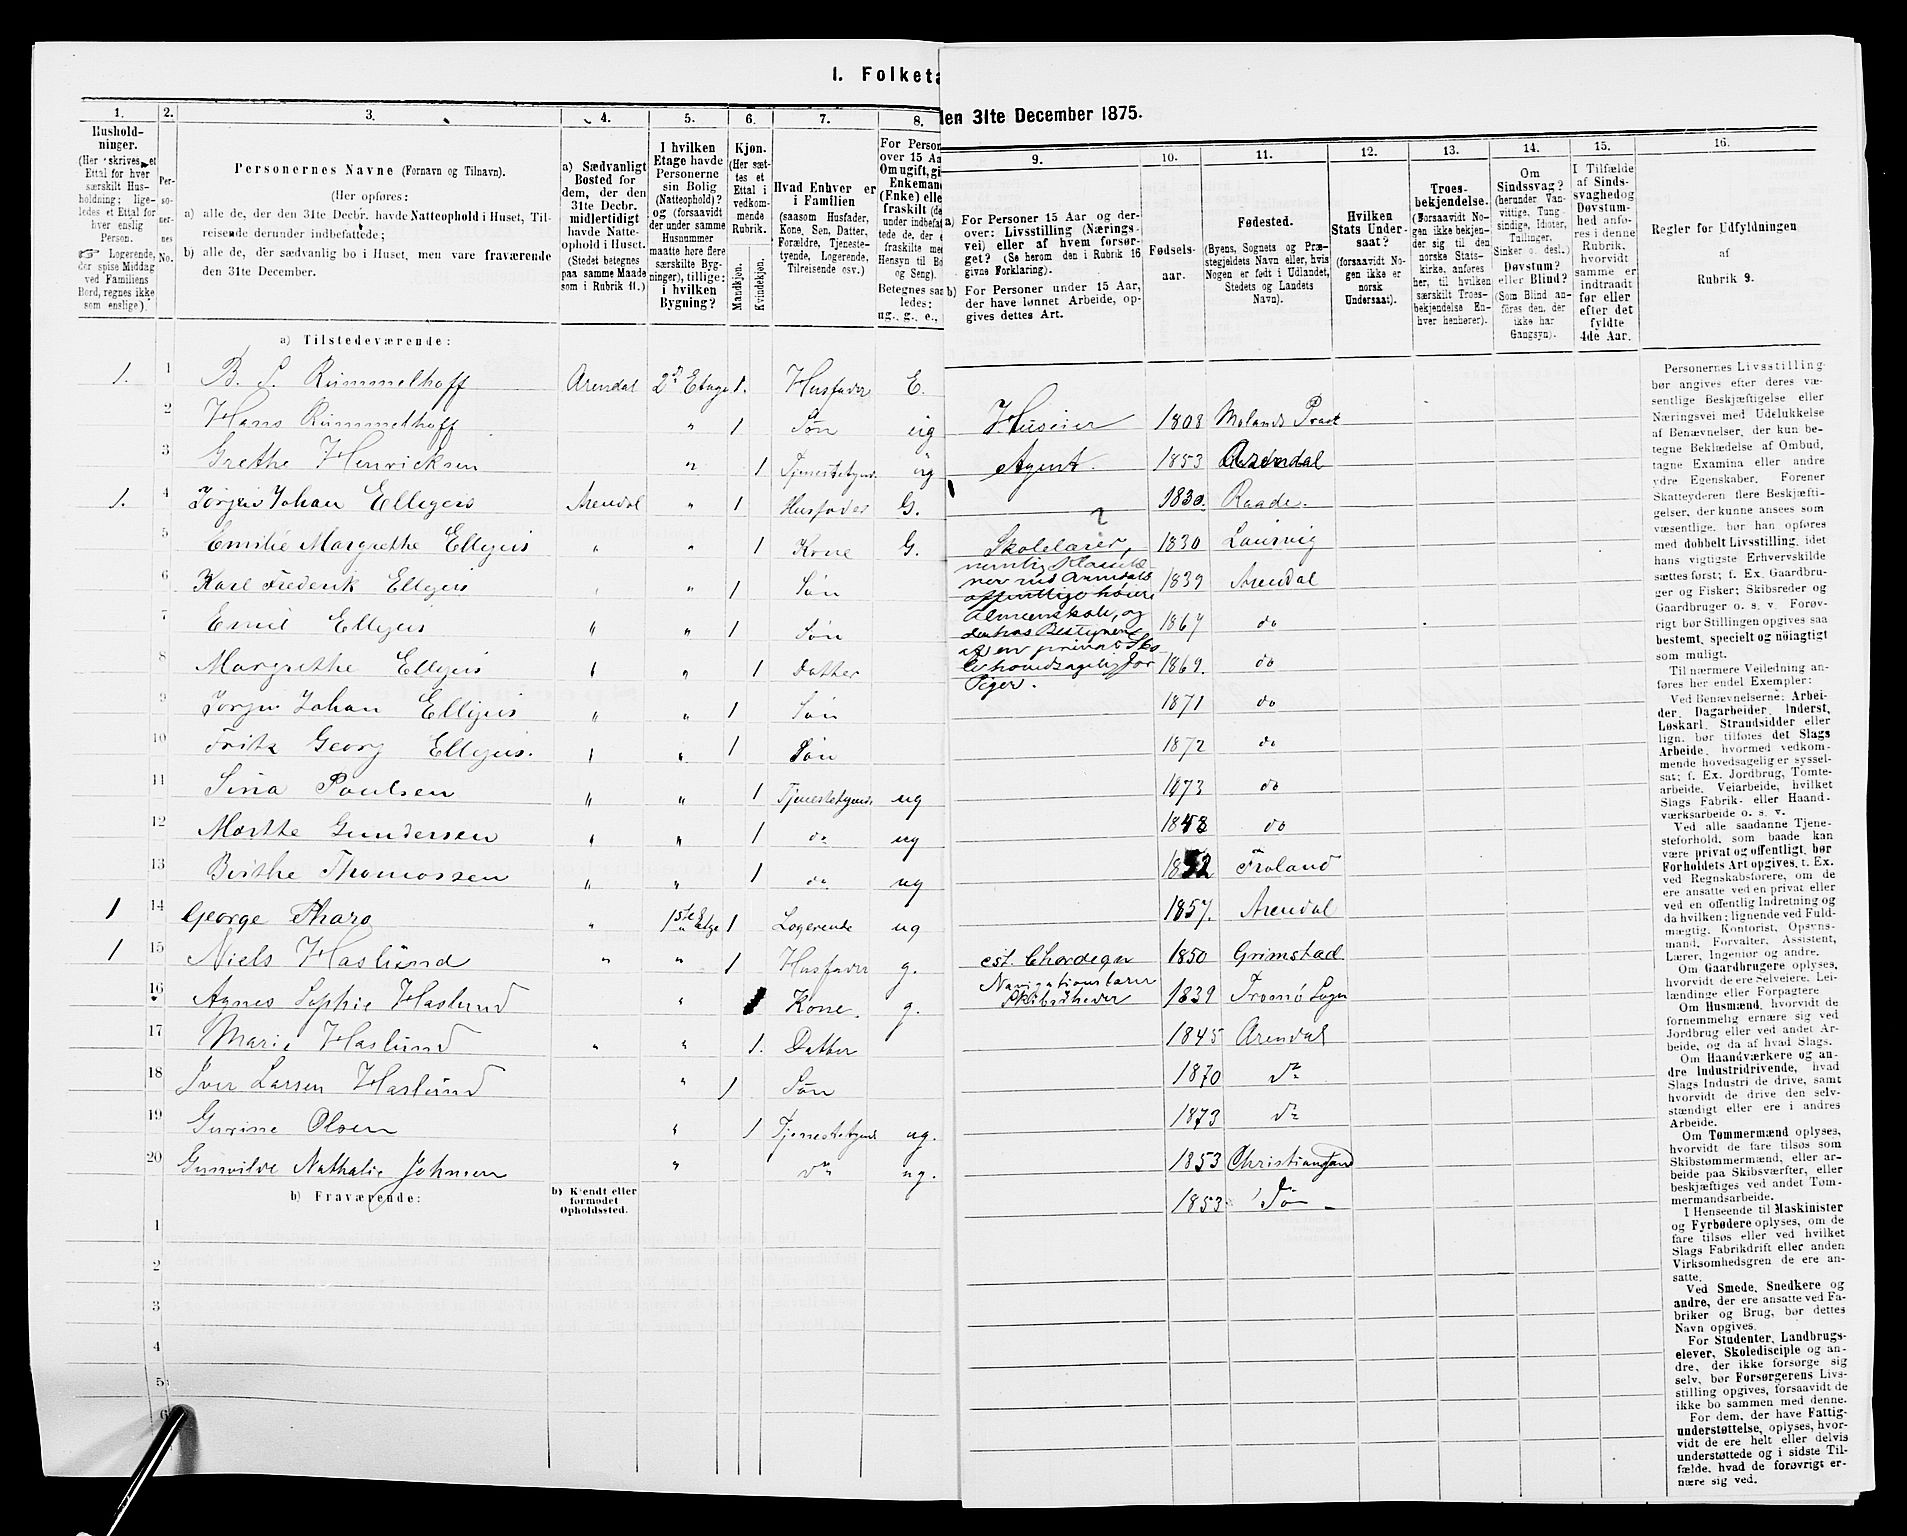 I. Folketæ
den 31te December 1875.
1.
2.
3.
4.
5.
6.
7.
8.
9.
10.
11.
12.
13.
14.
15.
16.
Hushold-
ninger.
(Her skrives et
Ettal for hver
særskilt Hus-
holdning; lige-
ledes et Ettal for
hver enslig
Person.
☞ Logerende,
der spise Middag
ved Familiens
Bord, regnes ikke
som enslige).
Per-
so-
ner-
nes
No.
Personernes Navne (Fornavn og Tilnavn).
(Her opføres:
a) alle de, der den 31te Decbr. havde Natteophold i Huset, Til-
reisende derunder indbefattede;
b) alle de, der sædvanlig bo i Huset, men vare fraværende
den 31te December.
a) Sædvanligt
Bosted for
dem, der den
31te Decbr.
midlertidigt
havde Natte-
ophold i Huset.
(Stedet betegnes
paa samme Maade
som i Rubrik 11.)
I hvilken
Etage havde
Personerne
sin Bolig
(Natteophold)?
og (forsaavidt
der under samme
Husnummer
maatte høre flere
særskilte Byg-
ninger), tillige:
i hvilken
Bygning?
Kjøn.
(Her sæt-
tes et
Ettal i
vedkom-
mende
Rubrik.
Mandkjøn.
Kvindekjøn.
Hvad Enhver er
i Familien
(saasom Husfader,
Kone, Søn, Datter,
Forældre, Tjeneste-
tyende, Logerende,
Tilreisende osv.)
For Person
over 15 Aa
Om ugift, gi
Enkemand
(Enke) elle
fraskilt (de
under indbefat
tede de, der e
fraskilte med
Hensyn til Bo
og Seng).
Betegnes saa
ledes:
ug., g., e.,
a) For Personer 15 Aar og der-
over: Livsstilling (Nærings-
vei) eller af hvem forsør-
get? (Se herom den i Rubrik 16
givne Forklaring).
b) For Personer under 15 Aar,
der have lønnet Arbeide, op-
gives dettes Art.
Fødsels-
aar.
Fødested.
(Byens, Sognets og Præ-
stegjeldets Navn eller, hvis
Nogen er født i Udlandet,
Stedets og Landets
Navn).
Hvilken
Stats Under-
saat?
(forsaavidt No-
gen ikke er
norsk
Undersaat).
Troes-
bekjendelse.
(Forsaavidt No-
gen ikke bekjen-
der sig til den
norske Stats-
kirke, anføres
her, til hvilken
særskilt Troes-
bekjendelse En-
hver henhører).
Om
Sindssvag?
(herunder Van-
vittige, Tung-
sindige, Idioter,
Tullinger,
Sinker o. desl.)
Døvstum?
eller Blind?
(Som Blind an-
føres den, der
ikke har
Gangsyn).
I Tilfælde
af Sinds-
svaghed og
Døvstum-
hed anfø-
res i denne
Rubrik,
hvorvidt
samme er
indtraadt
før eller
efter det
fyldte
4de Aar.
Regler for Udfyldningen
af
Rubrik 9.
a) Tilstedeværende:
1. 1 B. S. Rummelhoff Arendal 2d Etage 1. Husfader E.
2 Hans Rummelhoff " 1 Søn ug
3 Grethe Henricksen " 1 Tjenestetyende ug
1. 4 Jørgen Johan Ellegius Arendal " 1 Husfader G.
5 Emilie Margrethe Ellegius " " 1 Kone G.
6 Karl Frederik Ellegius " " 1 Søn
7 Emil Ellegius " " 1 Søn
8 Margrethe Ellegius " " 1 Datter
9 Jørgen Johan Ellegius " " 1 Søn
10 Fritz Georg Ellegius. " " 1 Søn
11 Sina Paulsen " " 1 Tjenestetyende ug
12 Marthe Gundersen " " 1 do ug
13 Birthe Thomassen " " 1 do ug
1 14 George Tharo " 1ste Etage 1 Logerende ug
1 15 Niels Haslund " " 1 Husfader g.
16 Agnes Sophie Haslund " 1 Kone. g.
17 Marie Haslund " " 1. Datter
18 Iver Larsen Haslund " 1 Søn
19 Gurine Olsen " 1 Tjenestetyende ug.
20 Gunvilde Nathalie Johnsen " do ug.
Huseier 1808 Molands Præst
Agent. 1853 Arendal
1830. Raade.
Skolelærer, 1830 Laurvig
nemlig Klasselæ-
rer ved Arendals 1839 Arendal
offentlige høiere
Almenskole, og 1867 do
derhos Bestyrer
af en privat Sko-
le hovedsagelig for 1869. do
Piger.
1871 do
1872 do
1873 do
1848 do
1852 Froland
1857. Arendal
1850 Grimstad
Navigationslærer
Skibsrheder 1839 Tromø Sogn
1845 Arendal
1870 do
1873 do
1853 Christiansand
1853 Do
b) Fraværende:
b) Kjendt eller
formodet
Opholdssted.
1
2
3
4
5
6
Personernes Livsstilling
bør angives efter deres væ-
sentlige Beskjæftigelse eller
Næringsvei med Udelukkelse
af Benævnelser, der kun be-
tegne Beklædelse af Ombud,
tagne Examina eller andre
ydre Egenskaber. Forener
Skatteyderen flere Beskjæfti-
gelser, der kunne ansees som
væsentlige, bør han opføres
med dobbelt Livsstilling, idet
hans vigtigste Erhvervskilde
sættes først; f. Ex. Gaardbru-
ger og Fisker; Skibsreder og
Gaardbruger o. s. v. Forøv-
rigt bør Stillingen opgives saa
bestemt, specielt og nøiagtigt
som muligt.
Til nærmere Veiledning an-
føres her endel Exempler:
Ved Benævnelserne: Arbei-
der, Dagarbeider, Inderst,
Løskarl, Strandsidder eller
lign. bør tilføres det Slags
Arbeide, hvormed vedkom-
mende hovedsagelig er syssel-
sat; f. Ex. Jordbrug, Tomte-
arbeide, Veiarbeide, hvilket
Slags Fabrik- eller Haand-
værksarbeide o. s. v.
Ved alle saadanne Tjene-
steforhold, som baade kan
være privat og offentligt, bør
Forholdets Art opgives, t. Ex.
ved Regnskabsførere, om de
ere ansatte ved en privat eller
ved en offentlig Indretning og
da hvilken; lignende ved Fuld-
mægtig, Kontorist, Opsyns-
mand, Forvalter, Assistent,
Lærer, Ingeniør og andre.
Om Gaardbrugere oplyses,
hvorvidt de ere Selveiere, Lei-
lændinge eller Forpagtere
Om Husmænd, hvorvidt de
fornemmelig ernære sig ved
Jordbrug eller ved andet Ar-
beide, og da af hvad Slags.
Om Haandværkere og an-
dre Industridrivende, hvad
Slags Industri de drive, samt
hvorvidt de drive den selv-
stændigt eller ere i andres
Arbeide.
Om Tømmermænd oplyses,
hvorvidt de fare tilsøs som
Skibstømmermænd, eller ar-
beide paa Skibsværfter, eller
beskjæftiges ved andet Tøm-
mermandsarbeide.
I Henseende til Maskinister
og Fyrbødere oplyses, om de
fare tilsøs eller ved hvilket
Slags Fabrikdrift eller anden
Virksomhedsgren de ere an-
satte.
Ved Smede, Snedkere og
andre, der ere ansatte ved Fa-
briker og Brug, bør dettes
Navn opgives.
For Studenter, Landbrugs-
elever, Skoledisciple og an-
dre, der ikke forsørge sig
selv, bør Forsørgerens Livs-
stilling opgives, forsaavidt de
ikke bo sammen med denne.
For dem, der have Fattig-
understøttelse, oplyses, hvor-
vidt de ere helt eller delvis
understøttede og i sidste Til-
fælde, hvad de forøvrigt er-
nære sig ved.